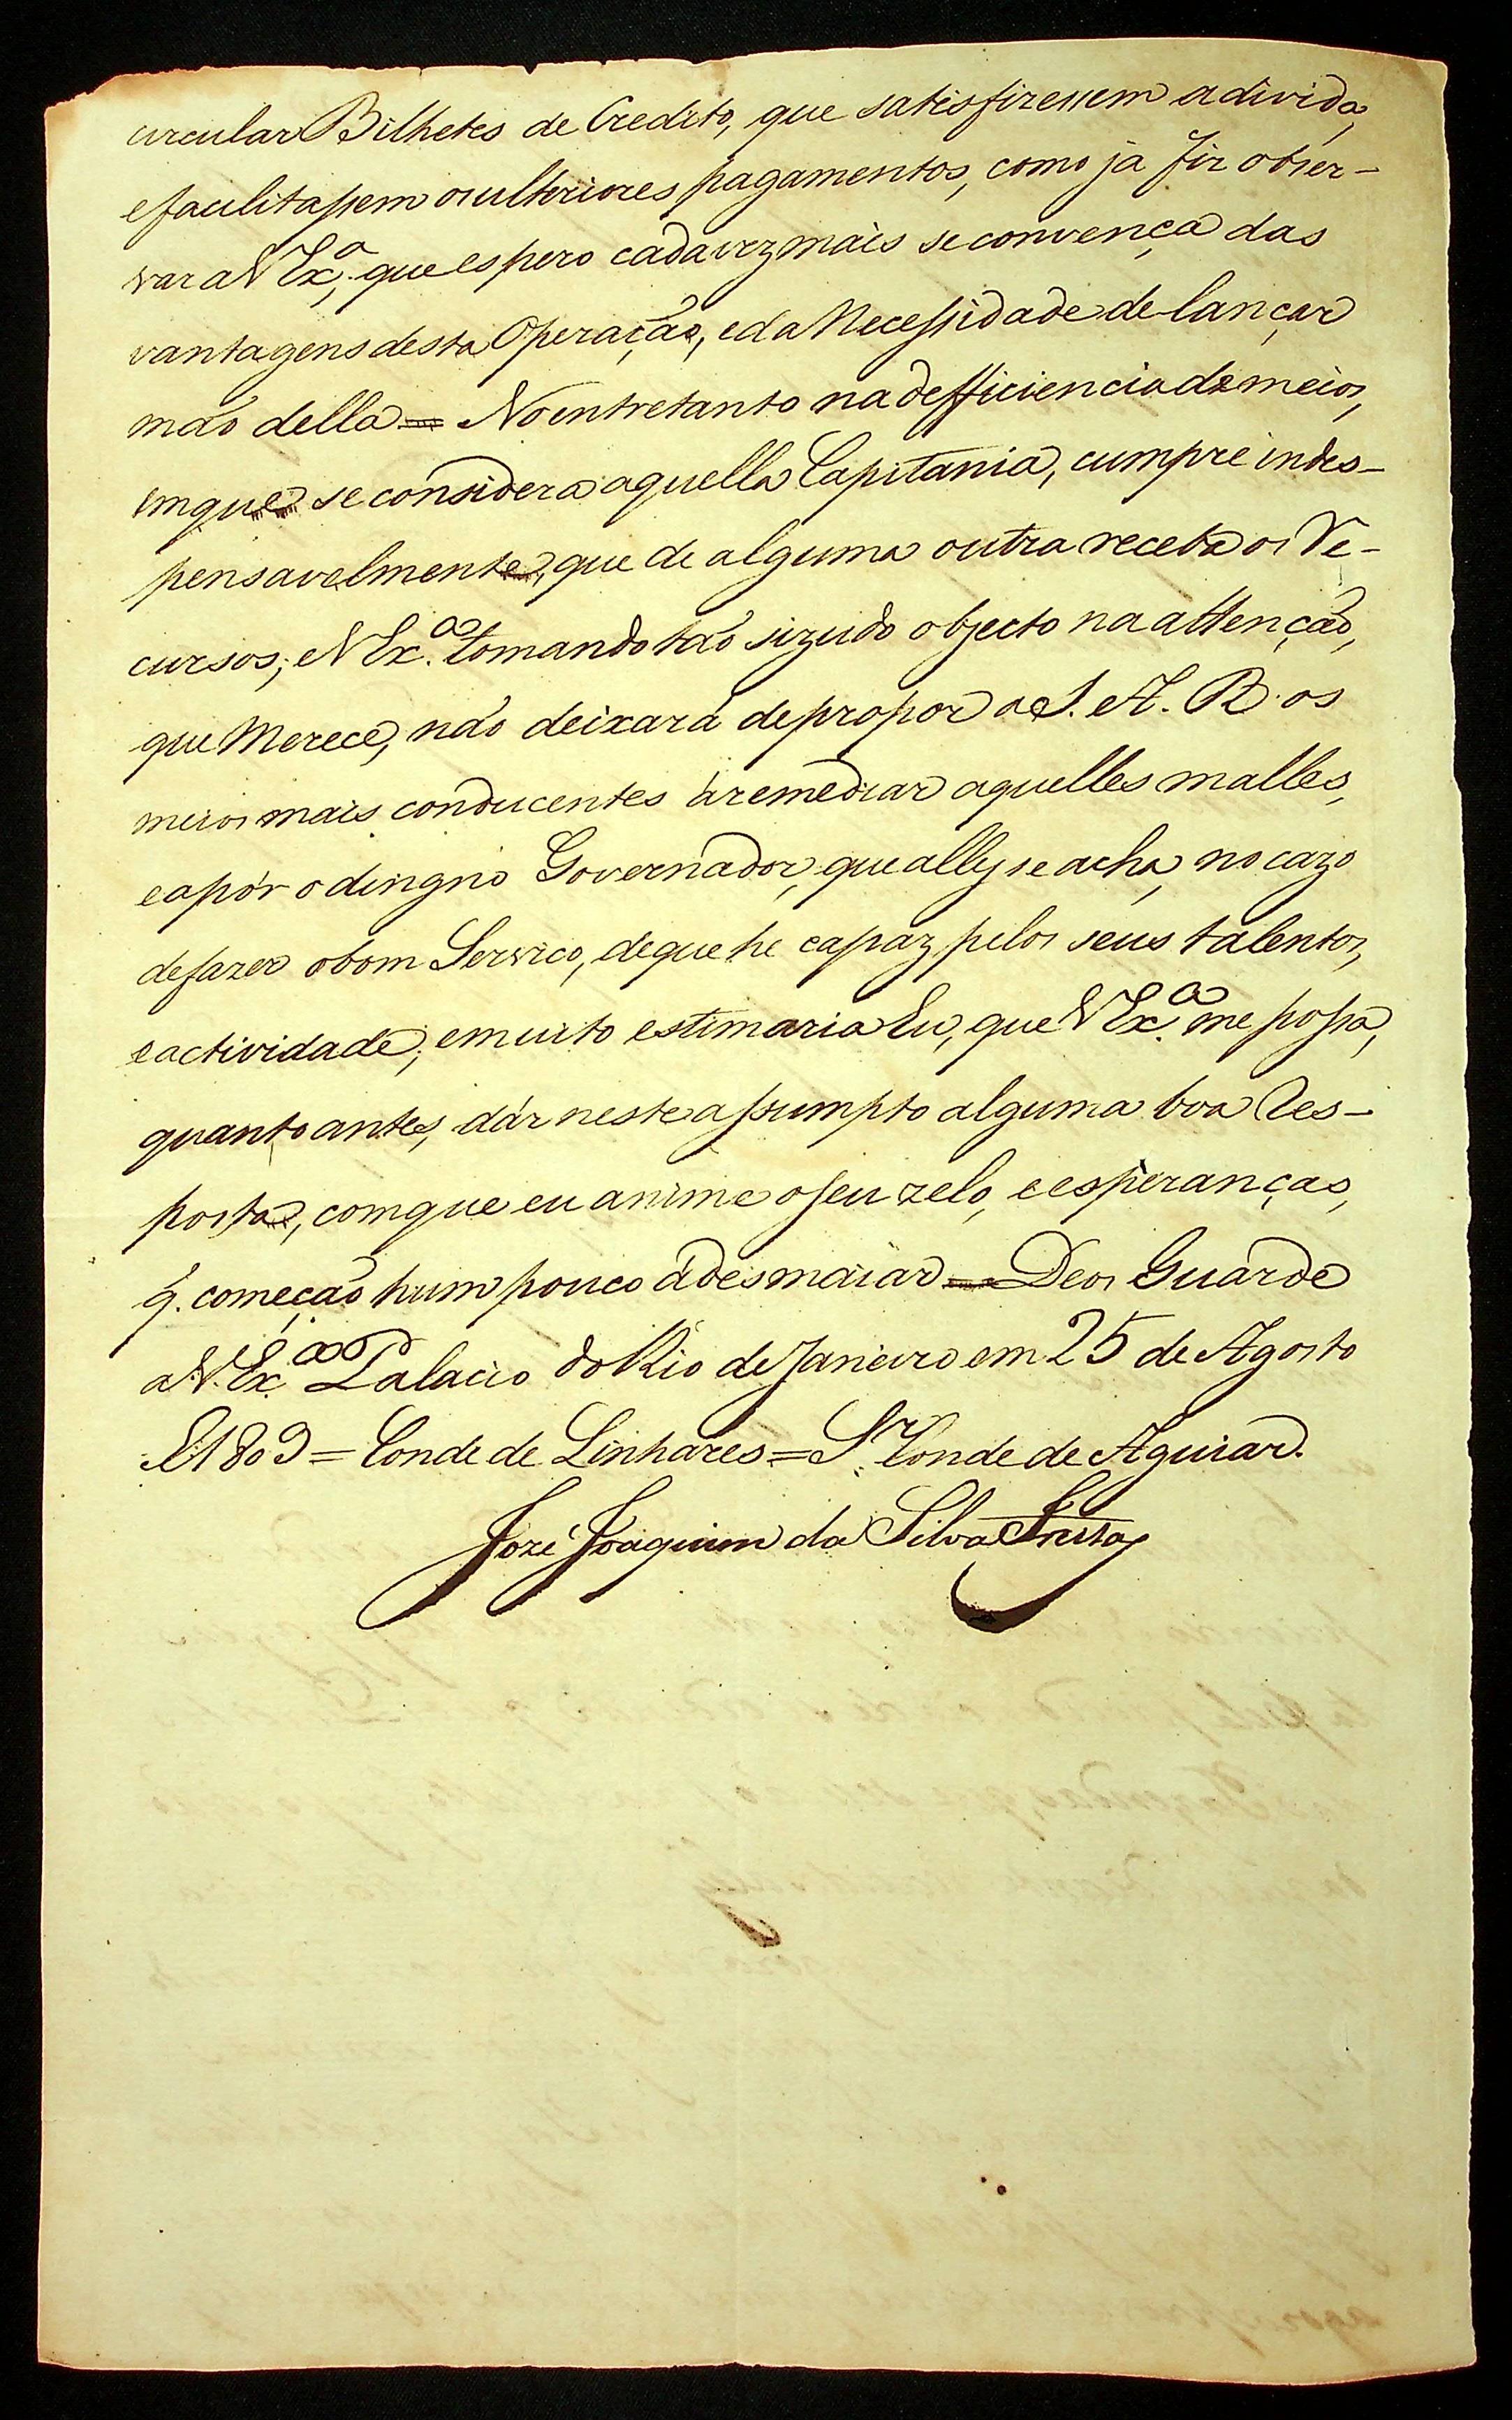 circular Bilhetes de Credito, que satisfizessem a divida,
e facilitassem os ulteriores pagamentos, como já fiz obser-
var a V Ex.ª, que espero cada vez mais se convença das
vantagens desta Operação, e da Necessidade de lançar
mão della = No entretanto na defficiencia de meios,
em que se considera aquella Capitania, cumpre indes-
pensavelmente, que de alguma outra receba os Re-
cursos; e V Ex.ª tomando tão sizudo objecto na attenção,
que Merece, não deixará de propor a S. A. R. os
meios mais conducentes á remediar aquelles malles,
e a pôr o dingno Governador, que ally se acha, no cazo
de fazer o bom Serviço, de que he capaz pelos seus talentos,
e actividade; e muito estimaria Eu, que V Ex.ª me possa,
quanto antes, dár neste assumpto alguma boa Res-
posta, com que eu anime o seu zelo, e esperanças,
q. começão hum pouco á desmaiar = Deos Guarde
a V. Ex.ª Palacio do Rio de Janeiro em 25 de Agosto
de 1809 = Conde de Linhares = S.r Conde de Aguiar.
Jozé Joaquim da Silva Freitas